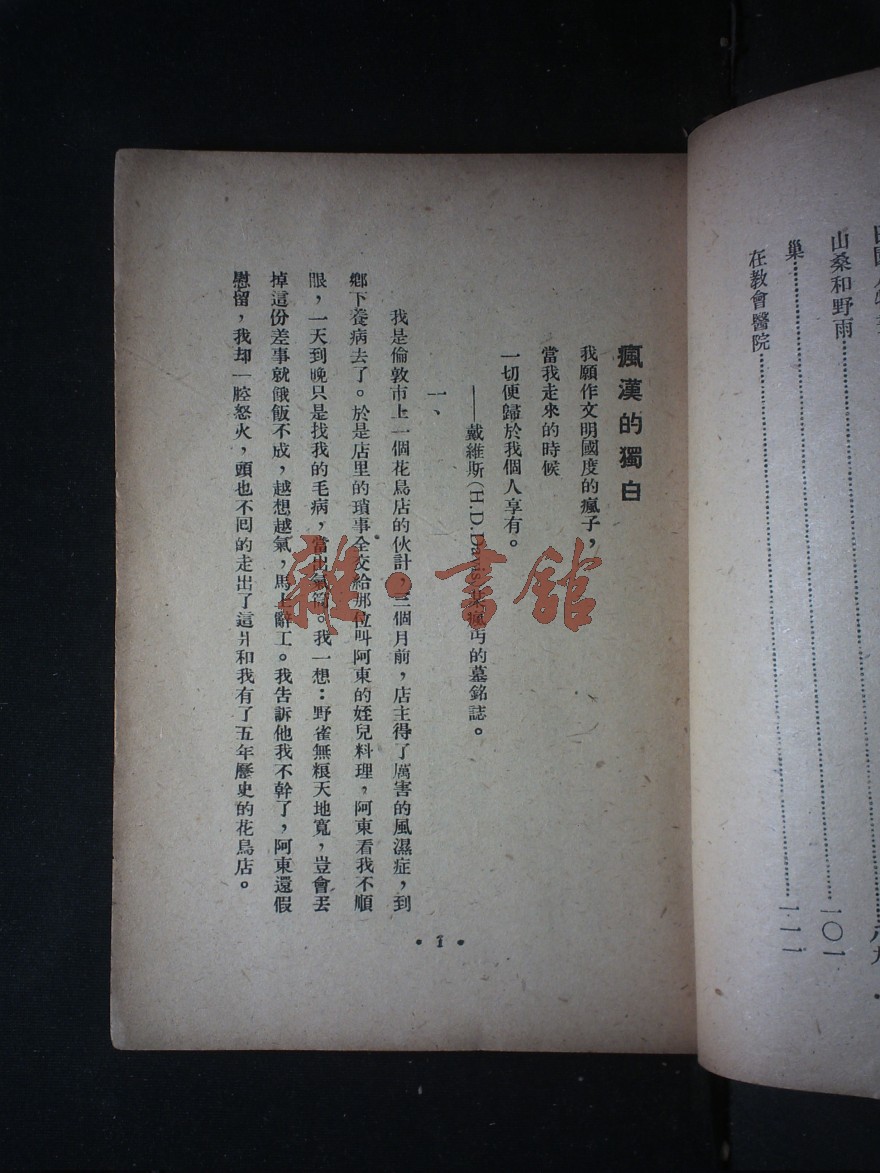 山桑和野雨……一〇一
巢……一一一
在教會醫院……
瘋漢的獨白
我願作文明國度的瘋子，
當我走來的時候
一切便歸於我個人享有。
——戴維斯(H.D.Davis)某瘋丐的墓銘誌。
一、
我是倫敦市上一個花鳥店的伙計，三個月前，店主得了厲害的風濕症，到
鄉下養病去了。於是店里的瑣事全交給那位叫阿東的姪兒料理，阿東看我不順
眼，一天到晚只是找我的毛病，當出氣筒。我一想：野雀無粮天地寬，豈會丟
掉這份差事就餓飯不成，越想越氣，馬上辭工。我告訴他我不幹了，阿東還假
慰留，我却一腔怒火，頭也不囘的走出了這爿和我有了五年歷史的花鳥店。
• 1 •
雜·書館